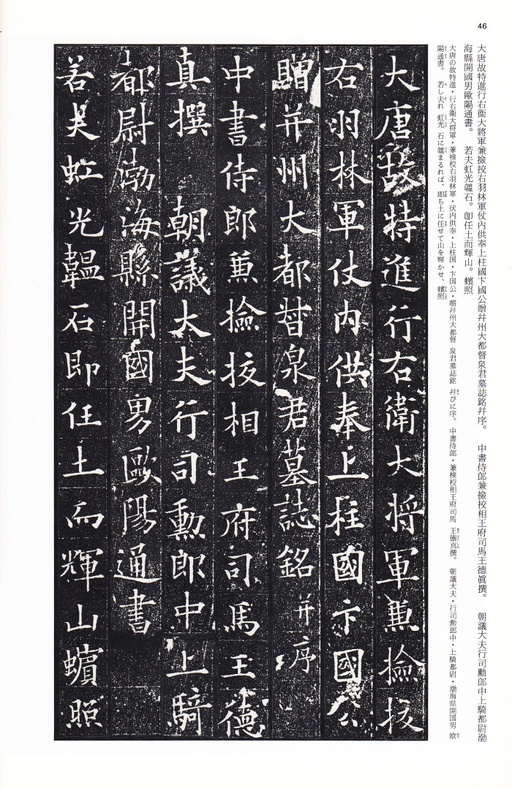 46
大唐故特進行右衞大將軍兼撿挍右羽林軍仗内供奉上柱國卞國公贈幷州大都督泉君墓誌銘幷序。　中書侍郎兼撿挍相王府司馬王德眞撰。　朝議大夫行司勳郎中上騎都尉渤
海縣開國男歐陽通書。　若夫虹光韞石。卽任土而輝山。蠙照
大唐の故特進・行右衞大将軍・兼検校右羽林軍・仗内供奉・上柱国・卞国公・贈幷州大都督　泉君墓誌銘　幷びに序。　中書侍郎・兼検校相王府司馬　王徳真撰。　朝議大夫・行司勳郎中・上騎都尉・渤海県開国男　欧
陽通書。　若し夫れ　虹光　石に韞まるれば、即ち土に任せて山を輝かせ、蠙照
大唐故特進行右衛大将軍兼撿挍
右羽林軍仗内供奉上柱國卞國公
贈并州大都督泉君墓誌銘并序
中書侍郎兼撿挍相王府司馬王德
真撰　朝議大夫行司勳郎中上騎
都尉渤海縣開國男歐陽通書
若夫虹光韞石即任土而輝山蠙照